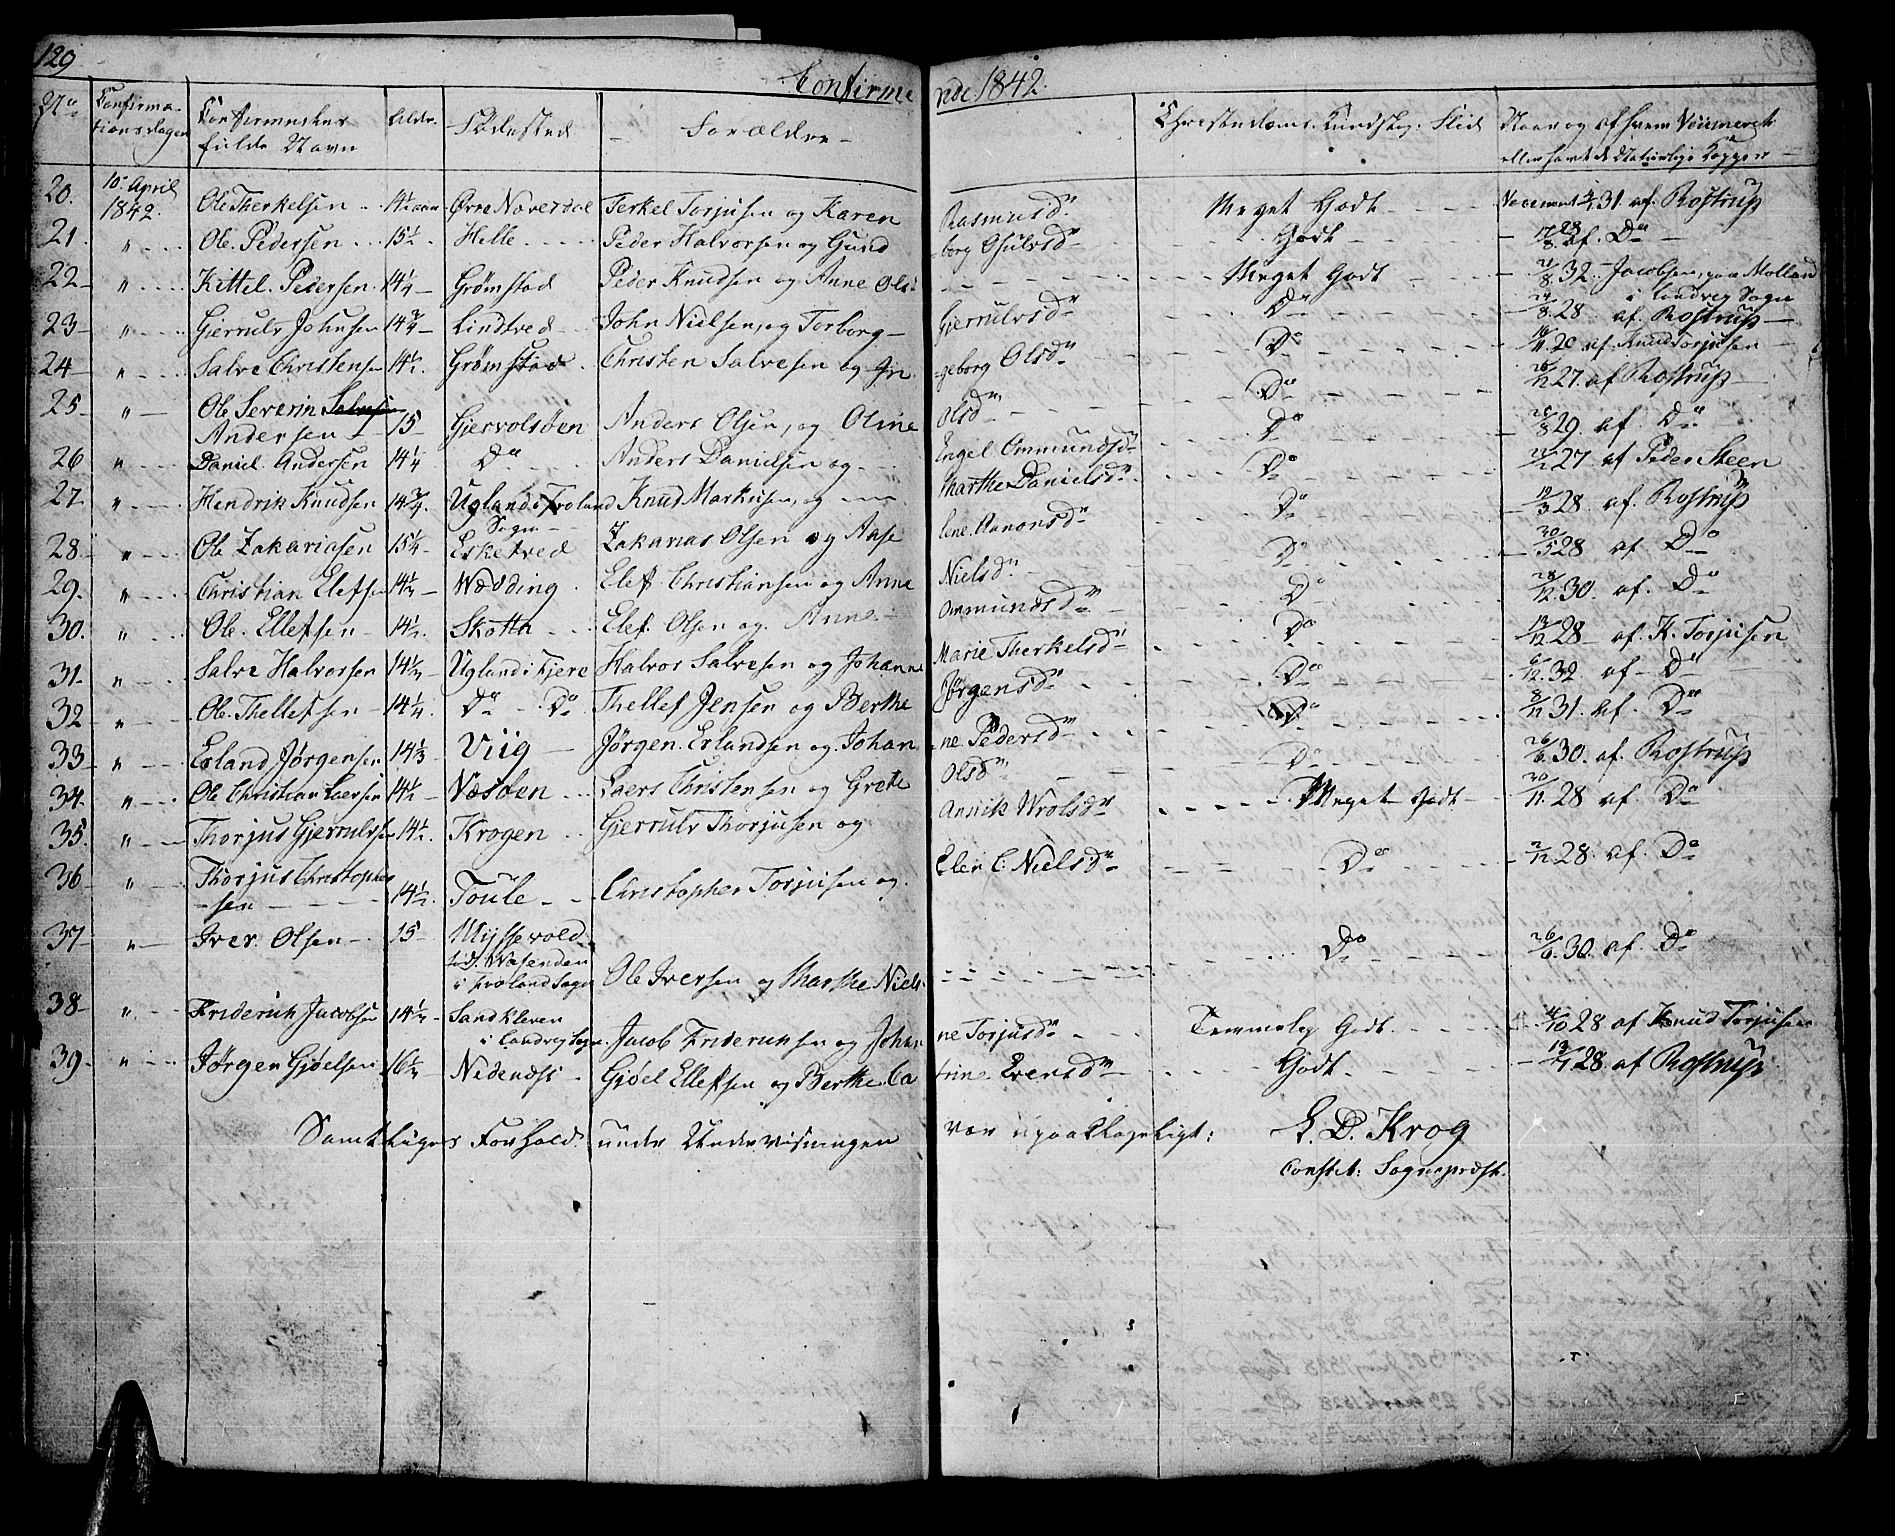 129
Confirmende 1842.
No Confirmationsdagen Confirmandens fulde Navn Alder Fødested Forældre Christendoms Kundskab: Flid Naar og af hvem Vaccineret eller havt de Naturlige Kopper
20. 10de April 1842. Ole Therkelsen 14½ aar Øvre Næverdal Terkel Torjusen og Karen Rasmusd. Meget Godt Vaccineret 31 af Rostrup
21 " Ole Pedersen 15½ Helle Peder Halvorsen og Gundborg Osulvsd. Godt 17/8 28 af Do
22 " Kittel Pedersen 14¼ Grømstad Peder Knudsen og Anne Olsd. Meget Godt 21/8 32 Jacobsen paa Molland i Landvig Sogn
23 " Gjerrulv Johnsen 14¾ Lindtved John Nielsen og Torborg Gjerrulvsd. Do 24/8 28 af Rostrup
24 " Salve Christensen 14½ Grømstad Christen Salvesen og Ingeborg Olsd. Do 16/11 20 af Knud Torjusen
25 " Ole Severin Andersen 15 Gjervolsøen Anders Olsen, og Oline Olsd. Do 26/12 27 af Rostrup
26 " Daniel Andersen 14¼ Do Anders Danielsen og Engel Ommundsd. Do 28/8 29 af Do
27. " Hendrik Knudsen 14¾ Ugland i Froland Sogn Knud Markusen, og Marthe Danielsd. Do 27 af Peder Steen
28 " Ole Zakariasen 15¼ Esketved Zakarias Olsen og Aase Do 19/3 28 af Rostrup
29. " Christian Elefsen 14½ Wedding Elef Christiansen og Anne Nielsd. Do 30/5 28 af Do
30. " Ole Ellefsen 14½ Skotta Elef Olsen og Anne Ommundsd. Do 28/12 30 af Do
31 " Salve Halvorsen 14½ Ugland i Fjere Halvor Salvesen og Johanne Marie Therkelsd. Do 13/12 28 af K. Torjusen
32 " Ole Thellefsen 14¼ Do Do Thellef Jensen og Berthe Jørgensd. Do 6/12 32 af Do
33 " Erland Jørgensen 14⅓ Viig Jørgen Erlandsen og Johanne Pedersd. Do 8/11 31 af Do
34. " Ole Christian Laersen 14½ Næsøen Laers Christensen og Grete Olsd. Do 26/6 30 af Rostrup
35. " Thorjus Gjerrulvsen 14½ Krogen Gjerrulv Thorjusen og Annik Wrolsd. Meget Godt 30/11 28 af Do
36 " Thorjus Christophersen 14½ Toule Christopher Torjusen og Elen C. Nielsd. Do 2/12 28 af Do
37 " Iver Olsen 15 Myssevold Wasenden i Froland Sogn Ole Iversen og Marthe Niels Do 26/6 30 af Do
38 " Friderik Jacobsen 14½ Sandkleven i Landvig Sogn Jacob Frideriksen og Johanne Torjusd. Temmelig Godt 4/10 28 af Knud Torjusen
39 " Jørgen Gjøelsen 16½ Nedenæs Gjøel Ellefsen og Berthe Catrine Evensd. Godt 28 af Rostrup
Samtliges Forhold under Underviisningen var upaaklageligt:
E. D. Krog
Constit: Sognepræst